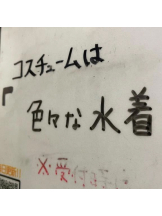 コスチュームは
「色々な水着
※受付